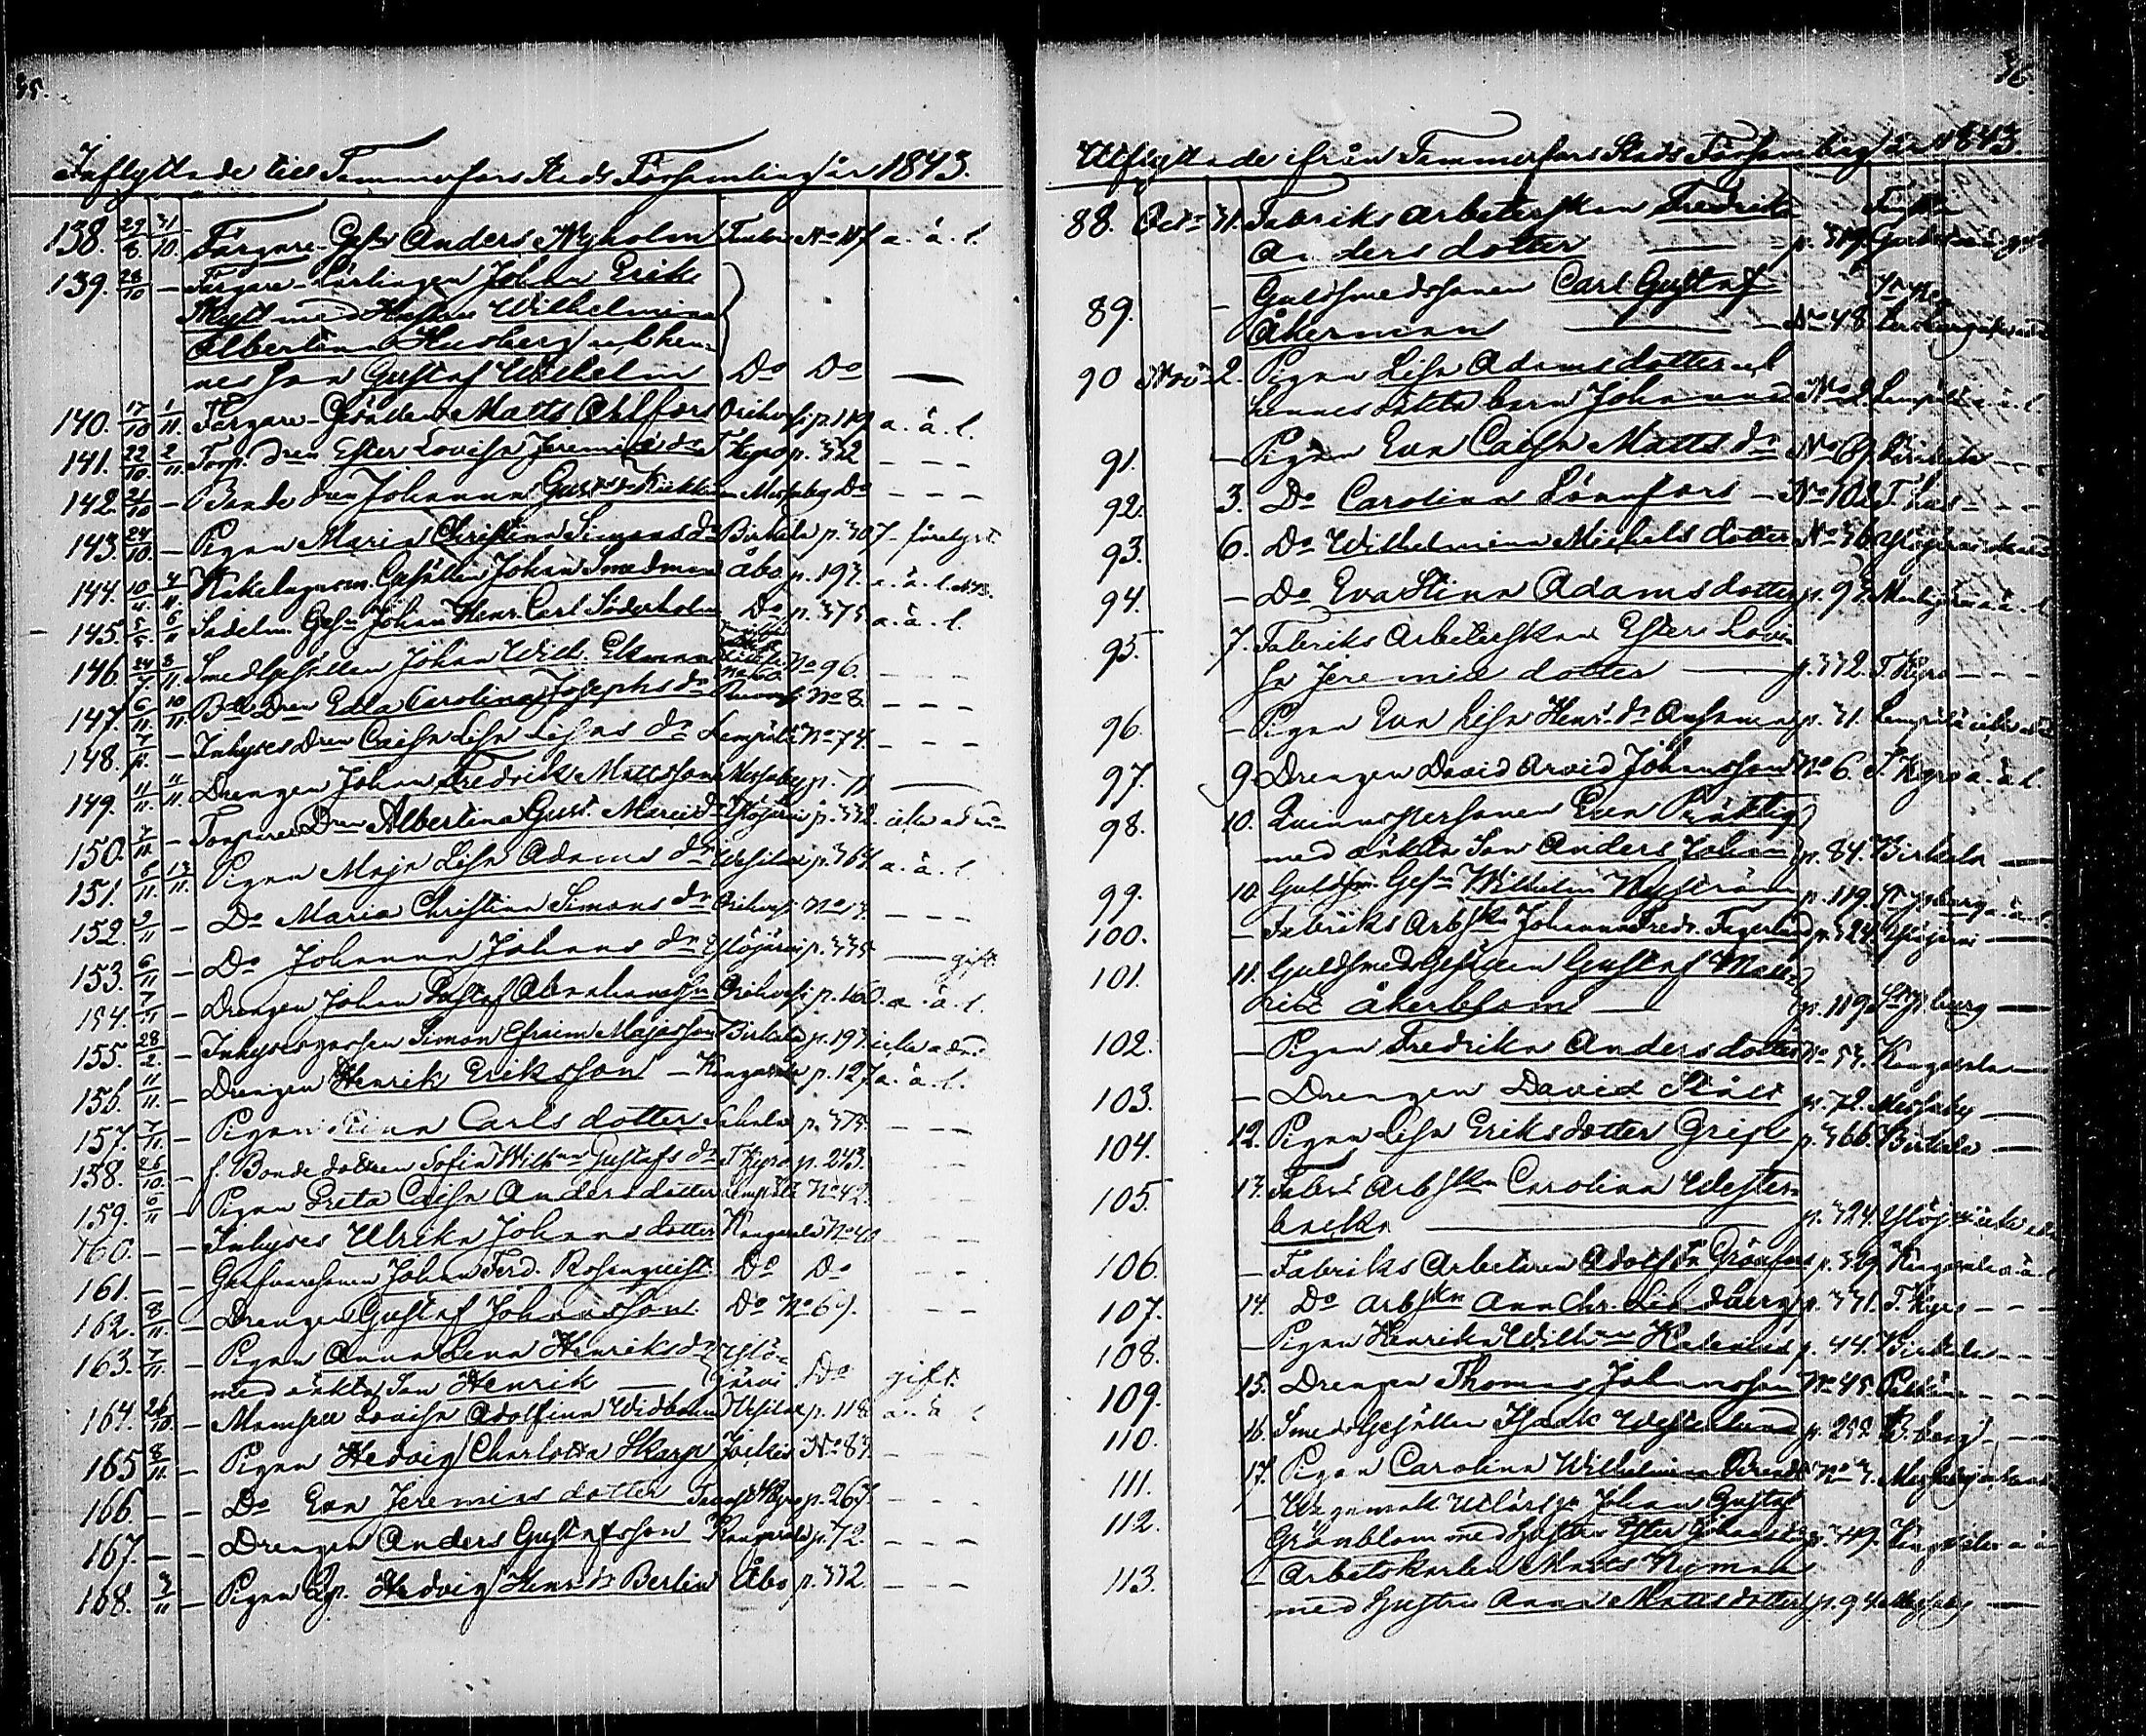 35.
Inflyttade till Tammerfors Stads Församling år 1843.
138. 29/6 31/10. Färgare Gesn Anders Nyholm No 117 a. ä. l.
139. 28/10 — Färgare-Lärlingen Johan Erik
med Hustru Wilhelmina
Albertina Husberg och hen-
nes son Gustaf Wilhelm Do Do —
140. 17/10 1/11. Färgare-Gesällen Matts Ahlfors Orihvesi p. 119 a. ä. l.
141. 22/10. 2/11. Torp. dren Ester Lovisa Jeremiæ dr T. Kyro p. 332 - - -
142. 21/10 — Bonde dren Johanna Messuby Do - - -
143. 24/10. — Pigan Maria Christina Simons dr Birkala p. 307 - förlyst.
144. 10/4 4/11. Kakelugnsm. Gesällen Johan Smedman Åbo p. 197. a. ä. l.
145. 5/5 6/11 Sadelm. Gesn Johan Henr. Carl Söderholm Do p. 375 a. ä. l.
146. 24/7. 8/11. Smedgesällen Johan Wilh. Ekman No 96. - - -
147. 6/11. 10/11. Bde Dren Edla Carolina Josephs dr No 8. - - -
148. — Inhyses dren Caisa Lisa Lisas dr Lempälä No 74. - - -
149. 11/11. 11/11. Drengen Johan Fredrik Mattsson Messuby p. 71 —
150. 7/11. — Torpare Dren Albertina Gust. Mariæ dr Ylöjärvi p. 332. icke adm.
151. 6/11. 13/11. Pigan Maja Lisa Adams dr Wesilax p. 364 a. ä. l.
152. 2/11 — Do Maria Christina Simons dr Orihvesi No 17. - - -
153. 6/11 — Do Johanna Johans dr Ylöjärvi p. 335 — gift
154. 7/11 — Drengen Johan Gustaf Abrahamsson Orihvesi p. 160. a. ä. l.
155. 28/2. — Inhysesgossen Simon Efraim Majasson Birkala p. 193. icke adm.
156. 11/11. — Drengen Henrik Eriksson — Kangasala p. 127 a. ä. l.
157. 7/11. — Pigan Stina Carls dotter p. 375. - - -
158. 26/10. — f. Bonde dottren Sofia Wilhna Gustafs dr T. Kyro p. 243. - - -
159. 6/11 — Pigan Greta Caisa Anders dotter Lempälä No 42. - - -
160. — — Inhyses Ulrika Johans dotter Kangasala No 40 - - -
161. — — Garfvaresonen Johan Ferd. Rosenquist Do Do - - -
162. 8/11. — Drengen Gustaf Johansson Do No 69. - - -
163. 7/11. — Pigan Anna Lena Henriks dr Ylö-
med oäkta Son Henrik — järvi Do gift.
164. 26/10. — Mamsell Lovisa Adolfina Widbom Wesilax p. 118 a. ä. l.
165 8/11. — Pigan Hedvig Charlotta Skarp Jockis No 83 - - -
166. — — Do Eva Jeremias dotter Tavast Kyro p. 267. - - -
167. — — Drengen Anders Gustafsson Kangasala p. 72. - - -
168. 9/11 — Pigan Hedvig Henr. dr Berlin Åbo p. 332. - - -
36.
Utflyttade ifrån Tammerfors Stads Församling år 1843.
88. Octo 31. Fabriks arbeterskan Fredrika
Anders dotter — p. 319.
89. — Guldsmedssonen Carl Gustaf
Åkerman — No 48.
90 Nov. 2. Pigan Lisa Adamsdotter och
hennes oäkta barn Johanna No 2. Lempälä a. ä. l.
91. — Pigan Eva Caisa Matts. dr No 69. - - -
92. 3. Do Carolina Lönnfors — No 102 - - -
93. 6. Do Wilhelmina Michels dotter No 36 Ylöjärvi
94. — Do Eva Stina Adamsdotter p. 97. a. ä. l.
95. 7. Fabriks Arbeterskan Ester Lovi-
sa Jeremiæ dotter — p. 332. T. Kyro - - -
96. — Pigan Eva Lisa Henr. dr p. 31. Lempälä icke
97. 9 Drengen David Arvid Johansson No 6. T. Kyro a. ä. l.
98. 10. Qvinnspersonen Eva Präktig
med oäkta Son Anders Johan p. 84. Birkala —
99. 10. Guldsm. Gesn Wilhelm Nyström p. 119. St Ptsburg a. ä. l.
100. — Fabriks Arbskn Johanna Fredr. Fagerlund p. 324. Ylöjärvi —
101. 11. Guldsmedsgesällen Gustaf Mau-
ritz Åkerblom — p. 119. St Ptsburg —
102. — Pigan Fredrika Andersdotter No 53. Kangasala —
103. — Drengen David Stålt p. 72. Messuby —
104. 12. Pigan Lisa Eriksdotter Grip p. 366. Birkala —
105. 13. Fabr. Arbskn Carolina Wester-
backa — p. 324. Ylöjärvi icke
106. — Fabriks Arbetaren Adolf Fr. Grönfors p. 329. Kangasala a. ä. l.
107. 14. Do arbskn Anna Chr. Lindberg p. 331. T. Kyro - - -
108. — Pigan Henrika Wilhna p. 44. Birkala - - -
109. 15. Drengen Thomas Johansson No 45. - - -
110. 16. Smedsgesällen Isaak Westerlund p. 255. - - -
111. 17. Pigan Carolina Wilhelmina No 7. Messuby
112. — Johan Gustaf
Grönblom med Hustru Ester Johans dr p. 319. Kangasala a. ä.
113. — Arbetskarlen Matts Nyman
med Hustru Anna Mattsdotter p. 94. Messuby —